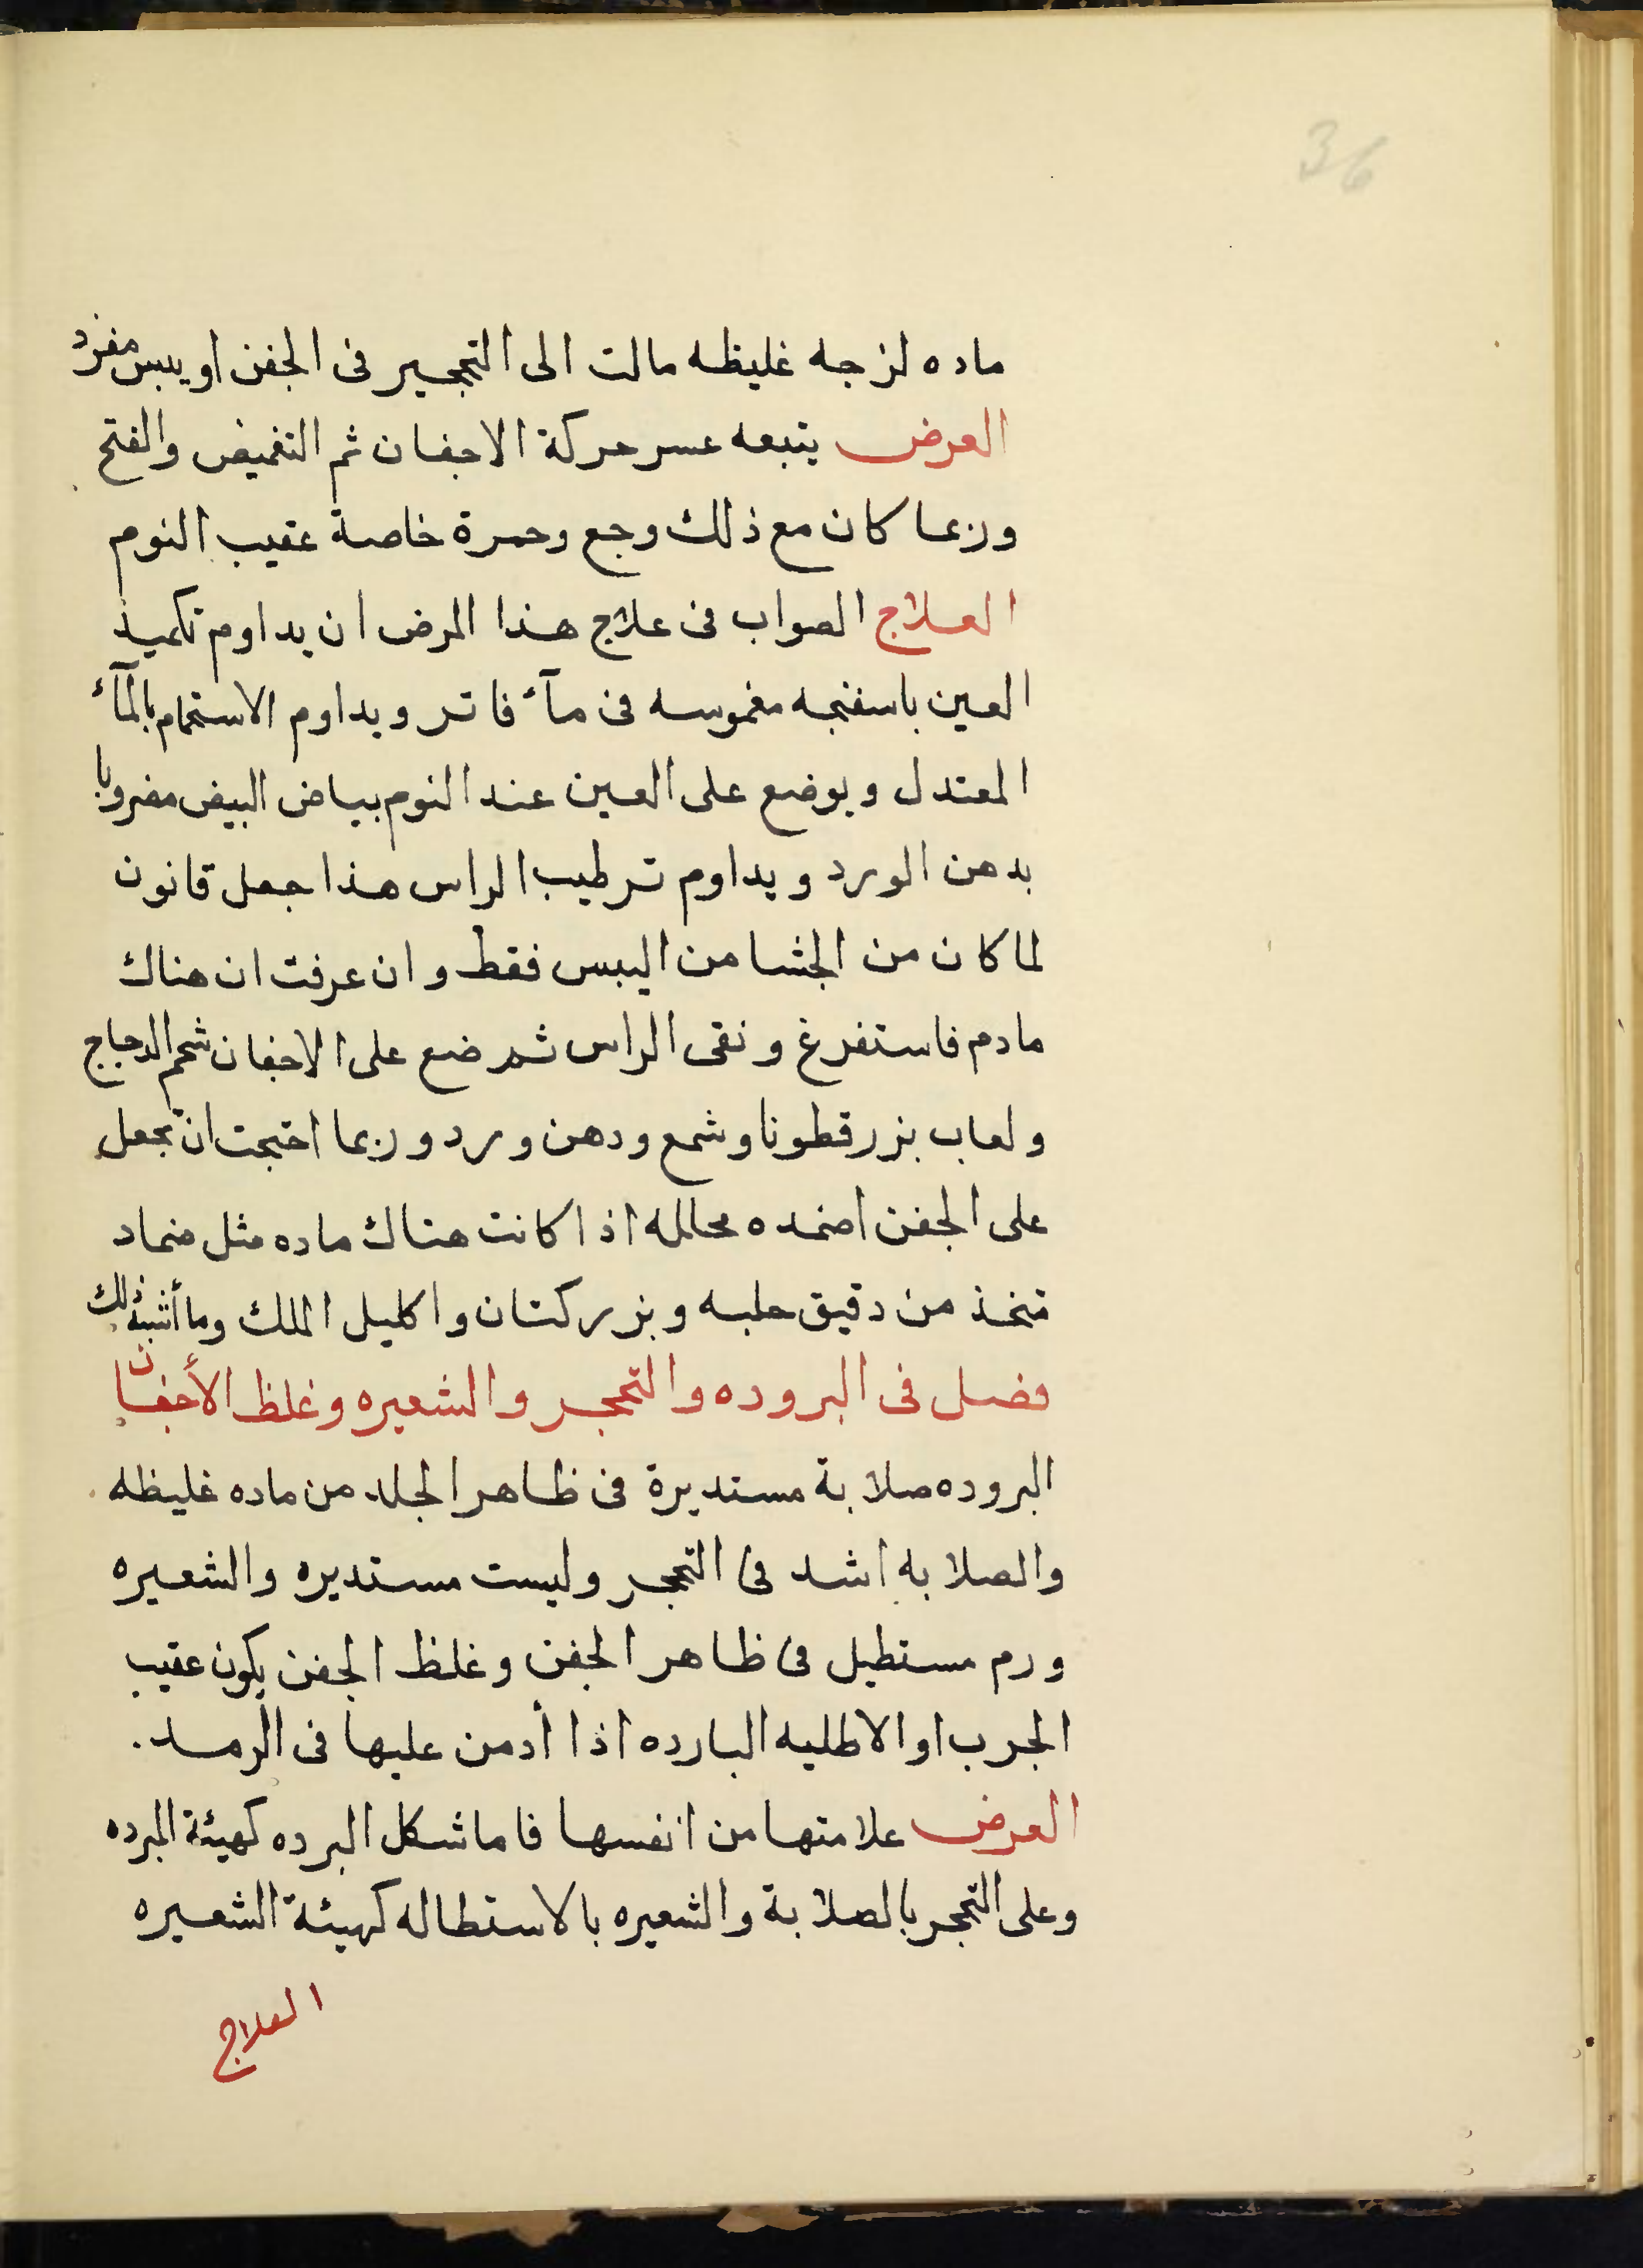 36
ماده لزجه غليظه مالت الى التحجير فى الجفن او يبس مفرد
العرض يتبعه عسر حركة الاجفان ثم التغميض والفتح
وربما كان مع ذلك وجع وحمرة خاصة عقيب النوم
العلاج الصواب فى علاج هذا المرض ان يداوم تكميد
العين باسفنجه مغموسه فى مآء فاتر ويداوم الاستحمام بالمآء
المعتدل ويوضع على العين عند النوم بياض البيض مضروبا
بدهن الورد ويداوم ترطيب الراس هذا جعل قانون
لما كان من الجشا من اليبس فقط وان عرفت ان هناك
مادم فاستفرغ ونقى الراس ثم ضع على الاجفان شحم الدجاج
ولعاب بزرقطونا وشمع ودهن ورد وربما احتجت ان تجعل
على الجفن اضمده محلله اذا كانت هناك ماده مثل ضماد
متخذ من دقيق حلبه وبزر كتان واكليل الملك وما أشبه ذلك
فصل فى البروده والتحجر والشعيره وغلظ الأجفان
البروده صلابة مستديرة فى ظاهر الجلد من ماده غليظه
والصلابه اشد فى التحجر وليست مستديره والشعيره
ورم مستطيل فى ظاهر الجفن وغلظ الجفن يكون عقيب
الجرب او الاطليه البارده اذا أدمن عليها فى الرمد.
العرض علامتها من انفسها فاما شكل البرده كهيئة البرده
وعلى التحجر بالصلابة والشعيره بالاستطاله كهيئة الشعيره
العلاج